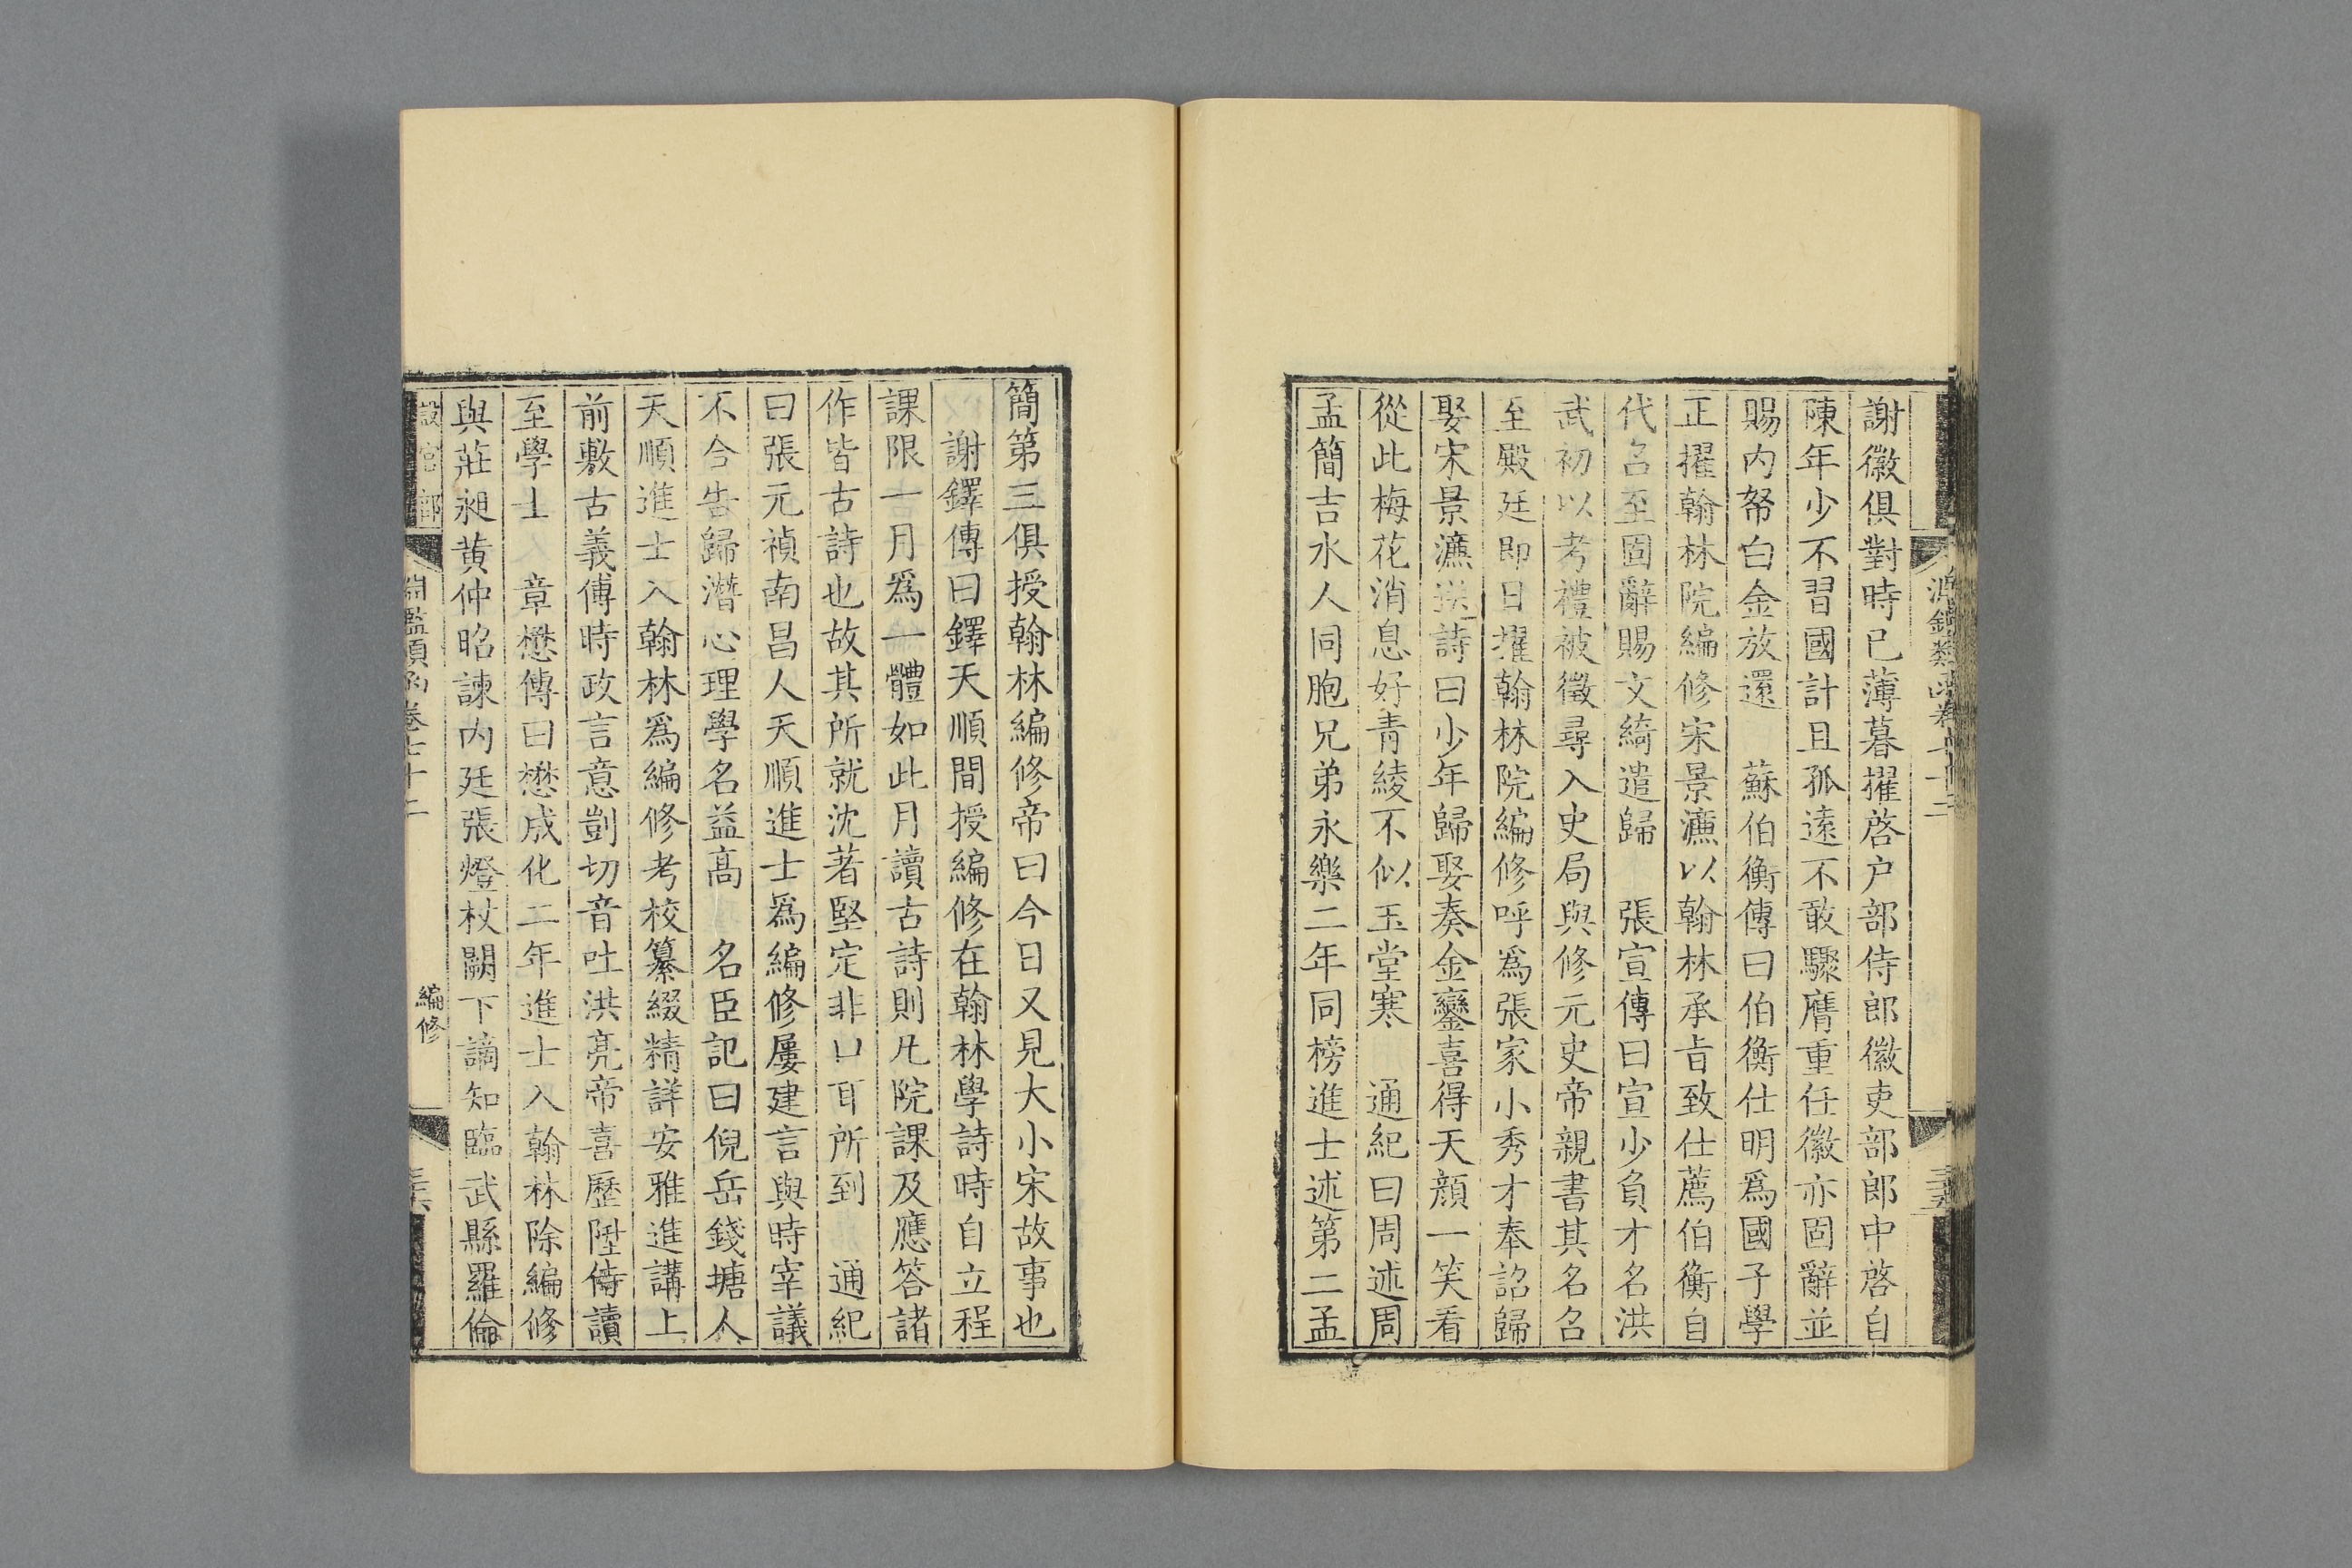 謝徽俱對時已薄暮擢啓户部侍郎徽吏部郎中啓自
陳年少不習國計且孤遠不敢驟膺重任徽亦固辭並
賜内帑白金放還　蘇伯衡傳曰伯衡仕明爲國子學
正擢翰林院編修宋景濂以翰林承旨致仕薦伯衡自
代召至固辭賜文綺遣歸　張宣傳曰宣少負才名洪
武初以考禮被徵尋入史局與修元史帝親書其名召
至殿廷即日擢翰林院編修呼爲張家小秀才奉詔歸
娶宋景濂送詩曰少年歸娶奏金鑾喜得天顔一笑看
從此梅花消息好青綾不似玉堂寒　通紀曰周述周
孟簡吉水人同胞兄弟永樂二年同榜進士述第二孟
簡第三俱授翰林編修帝曰今日又見大小宋故事也
謝鐸傳曰鐸天順間授編修在翰林學詩時自立程
課限一月爲一體如此月讀古詩則凡院課及應答諸
作皆古詩也故其所就沈著堅定非口耳所到　通紀
曰張元禎南昌人天順進士爲編修屢建言與時宰議
不合告歸潛心理學名益高　名臣記曰倪岳錢塘人
天順進士入翰林爲編修考校纂綴精詳安雅進講上
前敷古義傅時政言意剴切音吐洪亮帝喜歷陞侍讀
至學士　章懋傳曰懋成化二年進士入翰林除編修
與莊昶黄仲昭諫内廷張燈杖闕下謫知臨武縣羅倫
設官部
淵鑑類函卷七十二
編修